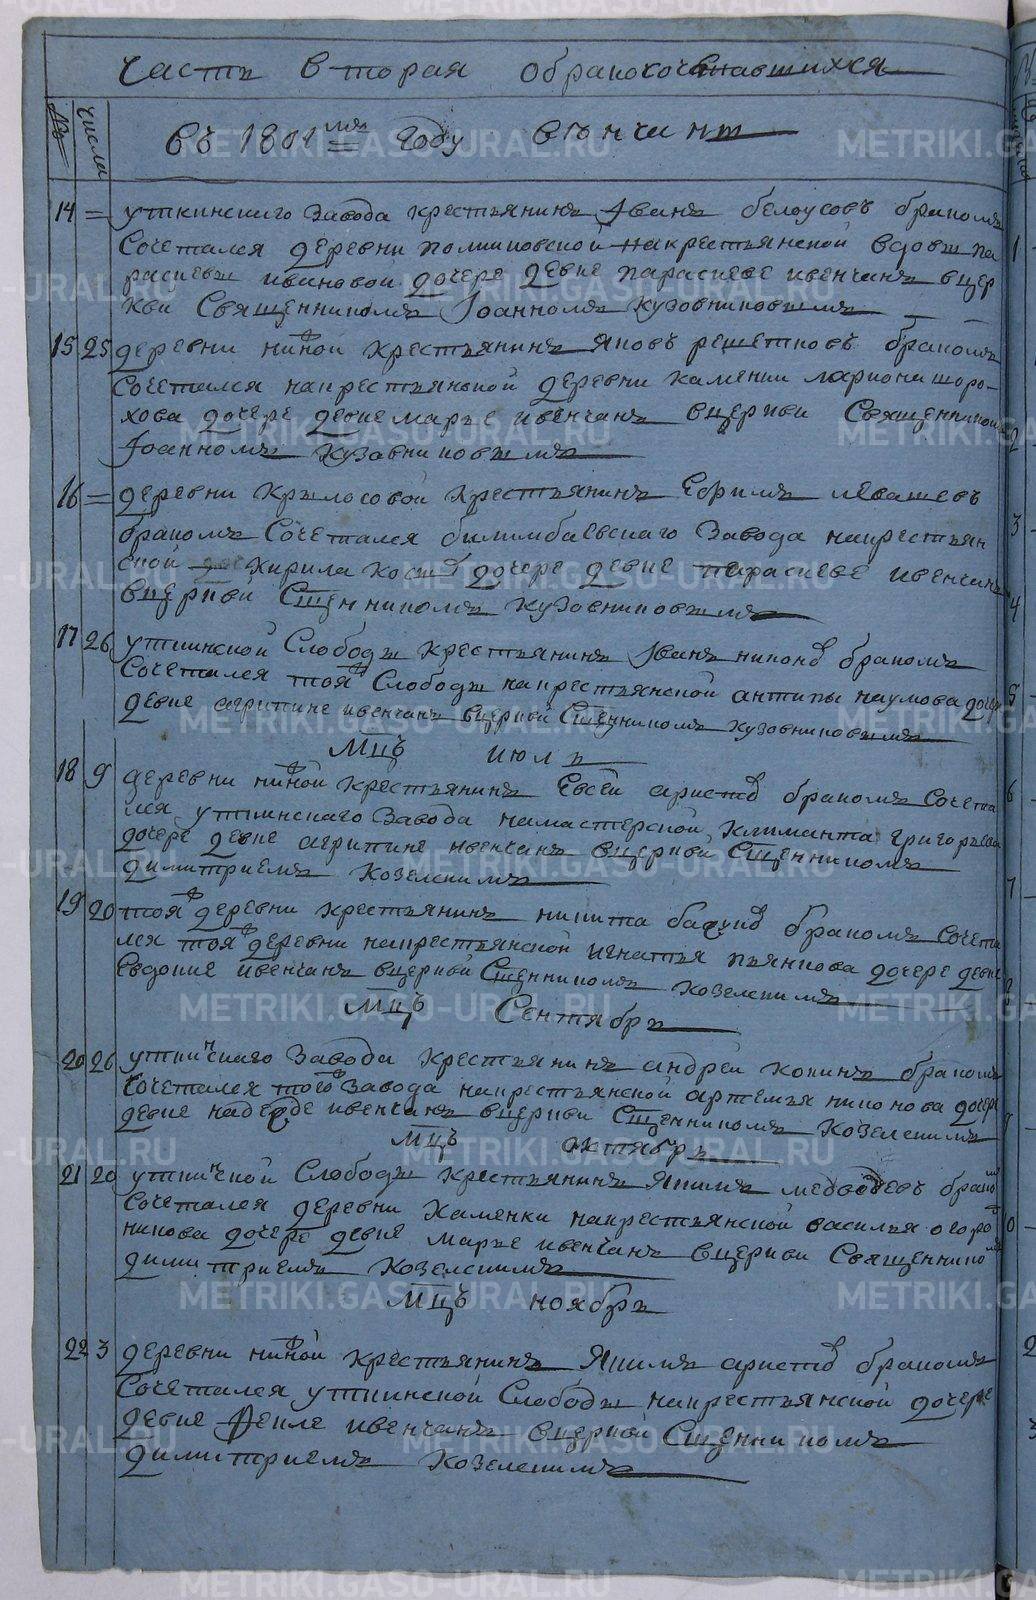 Часть вторая о бракосочетавшихся
№
числа
въ 1801мъ году венчаны
14 = уткинскаго завода крестьянинъ Iванъ белоусовъ бракомъ
сочетался деревни крестьянской вдовы па
расковьи ивановой дочере девке парасковье и венчанъ в цер
кви Священникомъ Iоанномъ Кузовниковымъ
15 25 деревни нижной крестьянинъ яковъ решетковъ бракомъ
сочетался на крестьянской деревни каменки лариона шоро-
хова дочере девке марье и венчанъ в церкви Священникомъ
Iоанномъ Кузавниковымъ
16 = деревни крылосовой крестьянинъ Ефимъ левашевъ
бракомъ сочетался билимбаевскаго завода на крестьян
ской кирила дочере девке парасковье и венчанъ
в церкви Сщенникомъ Кузовниковымъ
17 26 уткинской Слободы крестьянинъ Iванъ никоновъ бракомъ
сочетался тояжъ Слободы на крестьянской антипы наумова дочере
девке агрипине и венчанъ в церкви Сщенникомъ Кузовниковымъ
Мцъ июль
18 9 деревни нижной крестьянинъ Евсей аристовъ бракомъ сочета
лся уткинскаго завода на мастерской климанта григорьева
дочере девке агрипине и венчанъ в церкви Сщенникомъ
димитриемъ Козелскимъ
19 20 тояжъ деревни крестьянинъ никита бракомъ сочета
лся тояжъ деревни на крестьянской игнатья пьянкова дочере девке
Евдокие и венчанъ в церкви Сщенникомъ Козелскимъ
Мцъ Сентябрь
20 26 уткинскаго завода крестьянинъ андрей кокинъ бракомъ
сочетался тогожъ завода на крестьянской артемья никонова дочере
девке надежде и венчанъ в церкви Сщенникомъ Козелскимъ
Мцъ октябрь
21 20 уткинской Слободы крестьянинъ якимъ медведевъ бракомъ
сочетался деревни каменки на крестьянской василья огород
никова дочере девке марье и венчанъ в церкви Священникомъ
димитриемъ Козелскимъ
Мцъ ноябрь
22 3 деревни нижной крестьянинъ якимъ аристовъ бракомъ
сочетался уткинской Слободы на крестьянской дочере
девке Фекле и венчанъ в церкви Сщенникомъ
димитриемъ Козелскимъ
METRIKI.GASO-URAL.RU